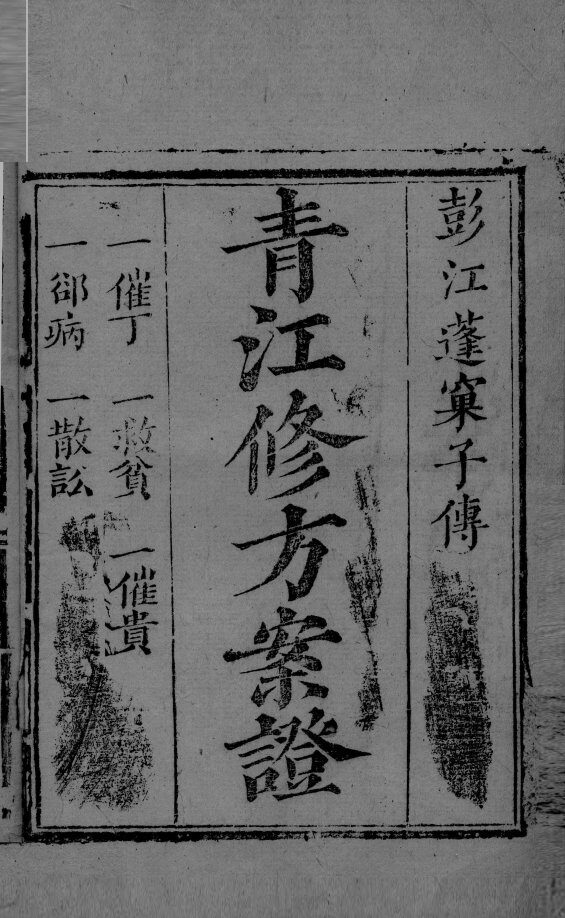 彭江蓬窠子傳
青江修方案證
一催丁 一救貧 一催貴
一郤病 一散訟